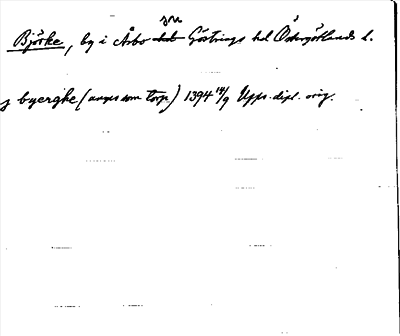 sn
Björke, by i Årbo Göstrings hd Östergötlands l.
j byergke (anges som torp) 1394 14/9 Upps. dipl. orig.